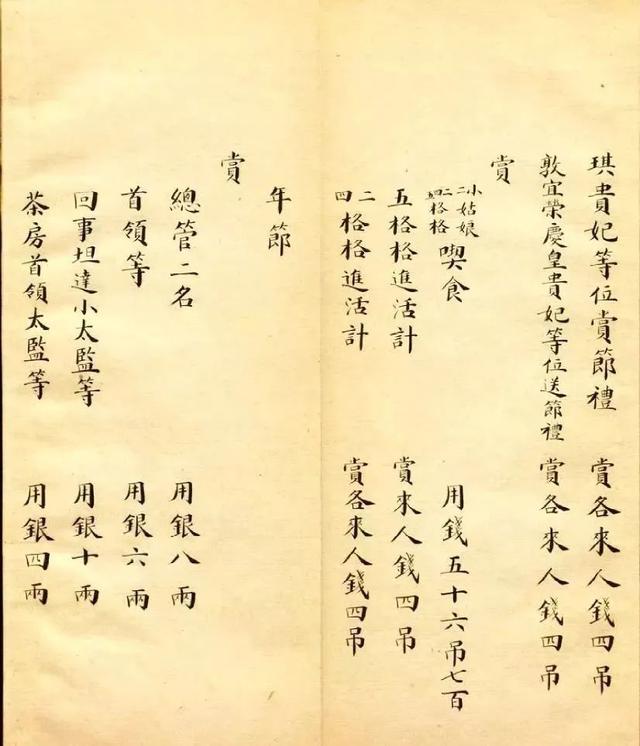 琪貴妃等位賞節禮　賞各來人錢四吊
敦宜榮慶皇貴妃等位送節禮　賞各來人錢四吊
賞
小姑娘二四格格喫食　用錢五十六吊七百
五格格進活計　賞來人錢四吊
二四格格進活計　賞各來人錢四吊
年節
賞
總管二名　用銀八兩
首領等　用銀六兩
回事坦達小太監等　用銀十兩
茶房首領太監等　用銀四兩